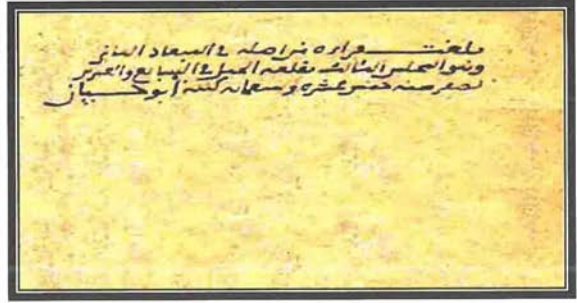 بلغت قراءة من اصله في الميعاد الثاني
وهو المجلس الثالث بقلعة الجبل في السابع والعشرين
لصفر سنة خمس عشرة وسبعمائة كتبه أبو حيان